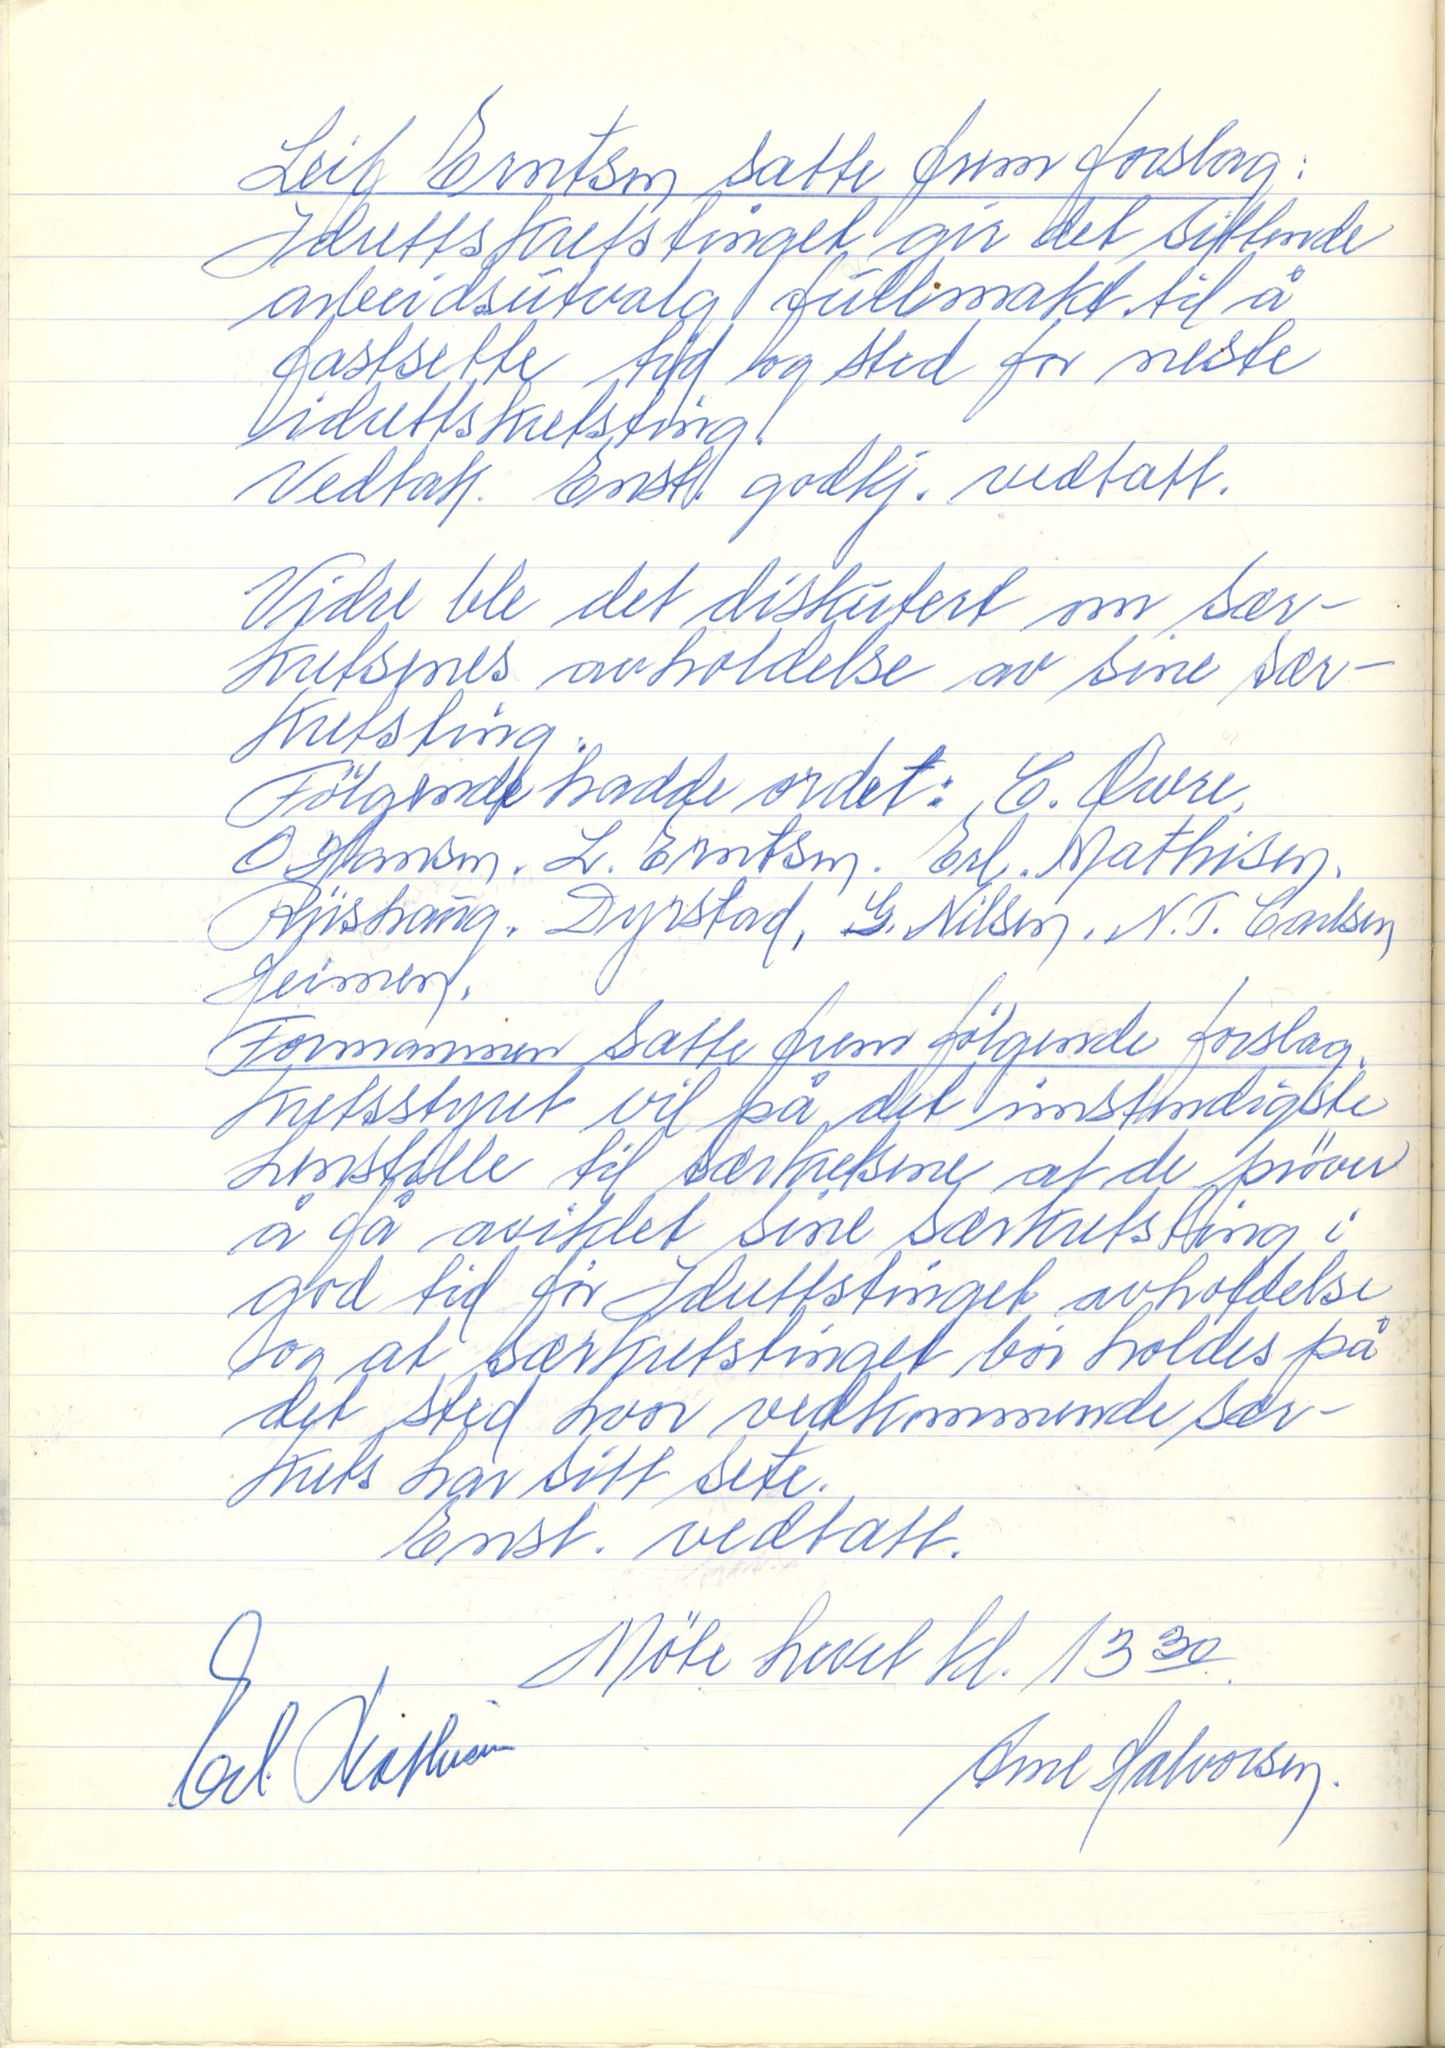 Leif Erntsen satte frem forslag:
Idrettskretstinget gir det sittende
arbeidsutvalg fullmakt til å
fastsette tid og sted for neste
idrettskretsting.
Vedtak. Enst. godkj. vedtatt.
Vidre ble det diskutert om sær-
kretsenes avholdelse av sine sær-
kretsting.
Følgende hadde ordet: C. Øvre,
O Hansen. L. Erntsen. Erl. Mathisen.
Dyrstad, G. Nilsen. N.T. Carlsen
Jeimen.
Formannen satte frem følgende forslag.
Kretsstyret vil på det innstendigste
henstille til særkretsene at de prøver
å få aviklet sine særkretsting i
god tid før Idrettstinget avholdelse
og at særkretstinget bør holdes på
det sted hvor vedkommende sær-
krets har sitt sete.
Enst. vedtatt.
Møte hevet kl. 13 30
Erl. Mathisen
Arne Halvorsen.